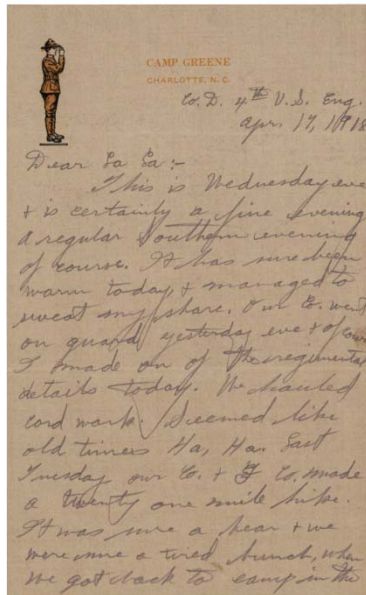 CAMP GREENE
CHARLOTTE, N. C.
Co. D. 4th U.S. Eng.
Apr. 17, 1918
Dear La La:-
This is Wednesday eve
+ is certainly a fine evening
a regular Southern evening
of course. It has sure been
warm today + managed to
sweat my share. Our Co. went
on guard yesterday eve + of
I made on of the regimental
details today. We hauled
cord work. Seemed like
old times Ha, Ha. Last
Tuesday our Co. + F Co. made
a twenty one mile hike.
It was sure a bear + we
were sure a tired bunch, when
we got back to camp in the